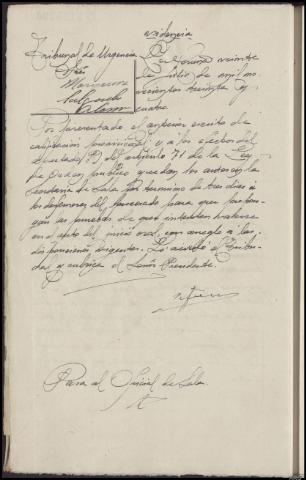 Providencia
Tribunal de Urgencia
Sres
La Coruña veinte
de Julio de mil no
vecientos treinta y
cuatro
Por presentado el anterior escrito de
calificación provisional y a los efectos del
apartado B) del artículo 71 de la Ley
de Orden publico quedan los autos en la
Secretaría de Sala por termino de tres dias a
los defensores del procesado para que propon
gan las pruebas de que intenten valerse
en el acto del juicio oral, con arreglo a las
disposiciones vigentes. Lo acordó el Tribu
nal y rubrica el Señor Presidente.
Pasa al Oficial de Sala.